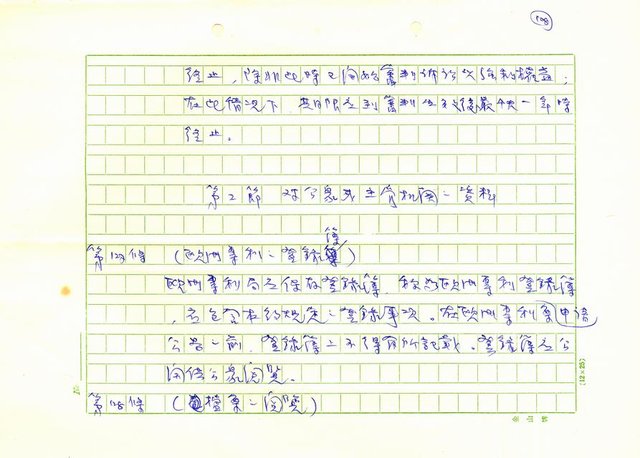 108
終止，除非此時已開始審判
在此情況下，其期限至到審判後最末一年時
終止。
第2節 對公眾或主管機關之資料
第127條 (歐洲專利之登錄簿)
歐洲專利局應保存登錄簿，稱為歐洲專利登錄簿
，應包含本約規定之登錄事項。在歐洲專利申請
公告之前，登錄簿上不得有所記載。登錄簿應公
開供公眾閱覽。
第128條 (檔案之閱覽)
(12×25)